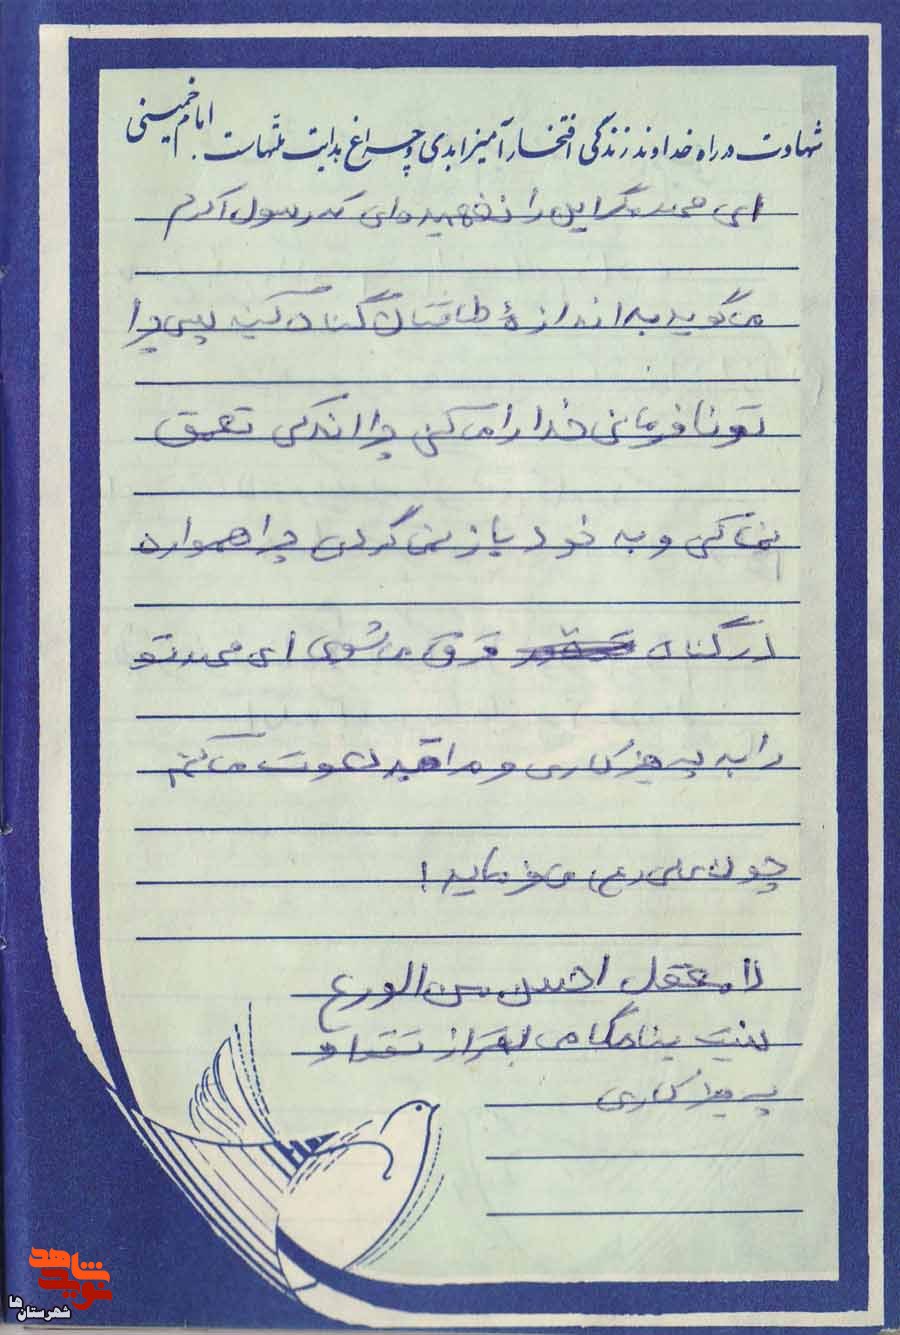 شهادت در راه خداوند زندگی افتخارآمیز ابدی و چراغ هدایت ملتهاست. امام خمینی
ای مگر این را نفهمیده‌ای که رسول اکرم
میگوید به اندازهٔ طاقتتان گناه کنید پس چرا
تو نافرمانی خدا را میکنی چرا اندکی تعمق
نمیکنی و به خود باز نمی گردی چرا همواره
در گناه غرق میشوی ای تو
را به پرهیزکاری و دعوت میکنم
چون علی (ع) میفرماید!
لا معقل احسن من الورع
نیست پناهگاهی بهتر از تقوا و
پرهیزکاری
نوید شاهد
شهرستان‌ها